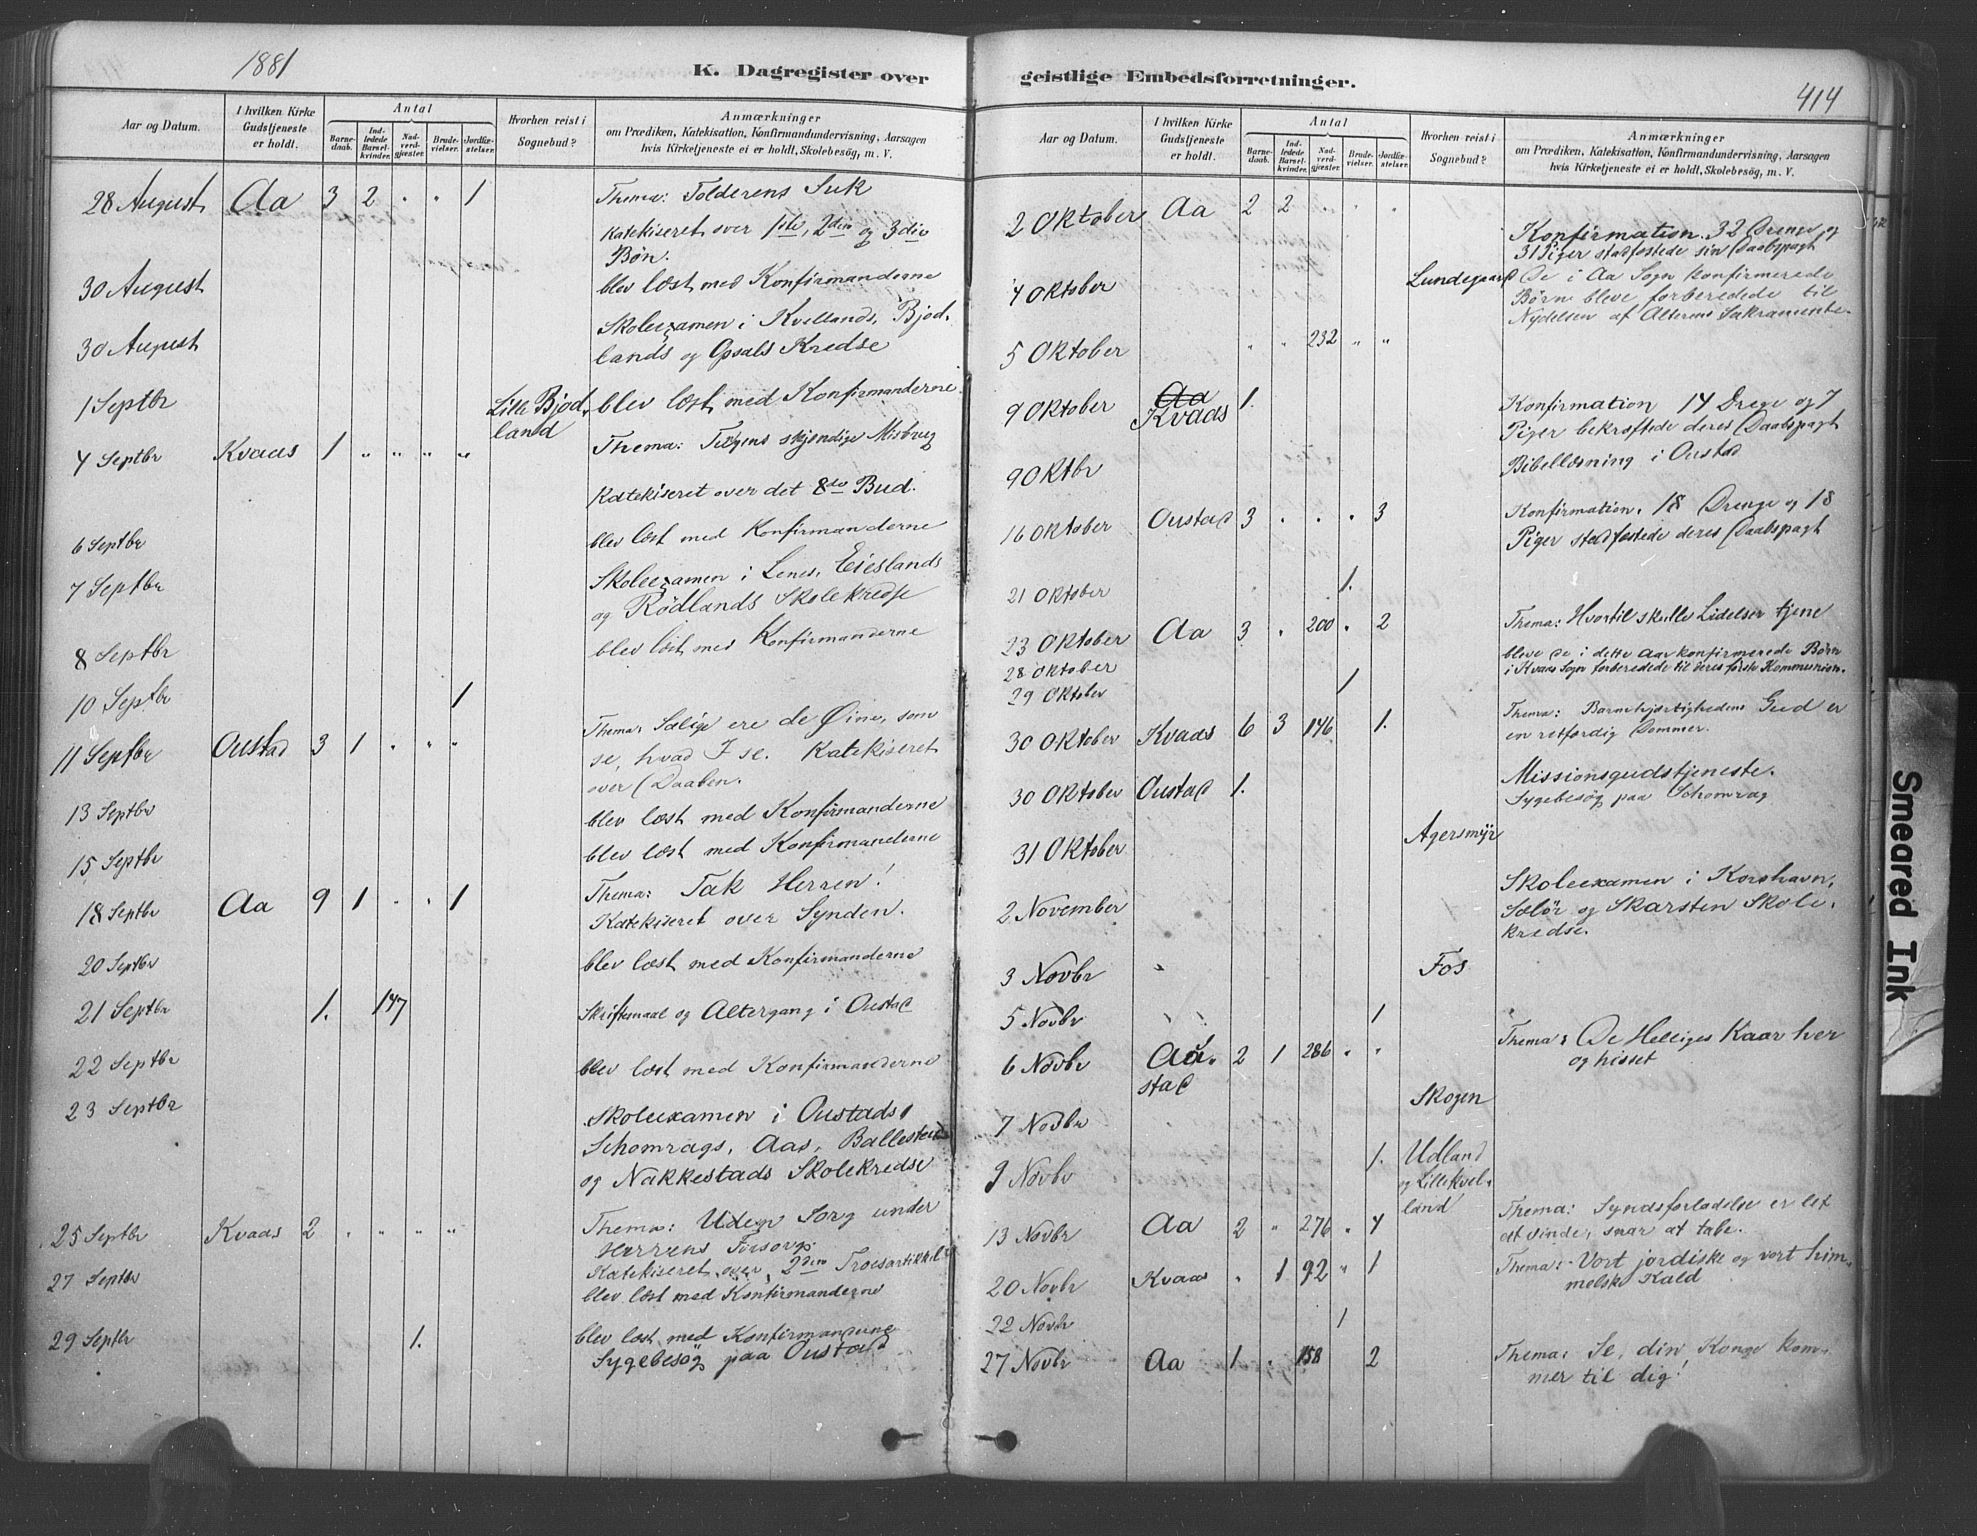 1881
K. Dagregister over
Aar og Datum.
I hvilken Kirke Gudstjeneste er holdt.
Antal
Barne-daab.
Ind-ledede Barsel-kvinder.
Nad-verd-gjæster.
Brude-vielser.
Jordfæ-stelser.
Hvorhen reist i Sognebud?
Anmærkninger
om Prædiken, Katekisation, Konfirmandundervisning, Aarsagen
hvis Kirketjeneste ei er holdt, Skolebesög, m. V.
28 August Aa 3 2 " " 1 Thema: Tolderens Suk
Katekiseret over 1ste, 2den og 3die
Bøn.
30 August blev læst med Konfirmanderne
30 August Skoleexamen i Kvellands, Bjod-
lands og Opsals Kredse
1 Septbr Lille Bjod- blev læst med Konfirmanderne
land
4 Septbr Kvaas 1 " " " " Thema: Tungens skjendige Misbrug
Katekiseret over det 8de Bud.
6 Septbr blev læst med Konfirmanderne
7 Septbr Skoleexamen i Lenes, Eieslands
og Rødlands Skolekredse
8 Septbr blev læst med Konfirmanderne
10 Septbr 1
11 Septbr Oustad 3 1 " " " Thema: Salige ere de Øine, som
se, hvad I se. Katekiseret
over Daaben.
13 Septbr blev læst med Konfirmanderne
15 Septbr blev læst med Konfirmanderne
18 Septbr Aa 9 1 " " 1 Thema: Tak Herren!
Katekiseret over Synden.
20 Septbr blev læst med Konfirmanderne
21 Septbr 1. 147 Skriftemaal og Altergang i Oustad
22 Septbr blev læst med Konfirmanderne
23 Septbr Skoleexamen i Oustads,
Schomrags, Aas, Ballestad
og Nakkestads Skolekredse
25 Septbr Kvaas 2 " " " " Thema: Uden Sorg under
Herrens Forsorg.
Katekiseret over 2den Troesartikkel
27 Septbr blev læst med Konfirmanderne
29 Septbr 1. blev læst med Konfirmanderne
Sygebesøg paa Oustad
geistlige Embedsforretninger.
414
Aar og Datum.
I hvilken Kirke Gudstjeneste er holdt.
Antal
Barne-daab.
Ind-ledede Barsel-kvinder.
Nad-verd-gjæster.
Brude-vielser.
Jordfæ-stelser.
Hvorhen reist i Sognebud?
Anmærkninger
om Prædiken, Katekisation, Konfirmandundervisning, Aarsagen
hvis Kirketjeneste ei er holdt, Skolebesög, m. V.
2 Oktober Aa 2 2 " " " Konfirmation. 32 Drenge og
31 Piger stadfæstede sin Daabspagt
4 Oktober Lundegaard De i Aa Sogn konfirmerede
Børn bleve forberedede til
Nydelsen af Alterens Sakramente.
5 Oktober " " 232 " "
9 Oktober Aa Kvaas 1. Konfirmation 14 Drenge og 7
Piger bekræftede deres Daabspagt
9 Oktbr Bibellæsning i Oustad
16 Oktober Oustad 3 " " " 3 Konfirmation. 18 Drenge og 18
Piger stadfæstede deres Daabspagt
21 Oktober 1.
23 Oktober Aa 3 " 200 " 2 Thema: Hvortil skulle Lidelser tjene
28 Oktober bleve de i dette Aar konfirmerede Børn
i Kvaas Sogn forberedede til deres første Kommunion.
29 Oktober 1
30 Oktober Kvaas 6 3 146 1. Thema: Barmhjertighedens Gud er
en retfærdig Dommer.
30 Oktober Oustad 1. Missionsgudstjeneste.
Sygebesøg paa Schomrag
31 Oktober Agersmyr
2 November Skoleexamen i Korshavn,
Sælør og Skarsten Skole-
kredse.
3 Novbr Fos
5 Novbr 1
6 Novbr 2 1 286 " " Thema: De Helliges Kaar her
og hisset
7 Novbr Skogen
9 Novbr 1. Udland
og Lille Kvel-
land
13 Novbr Aa 2 " 276 " 4 Thema: Syndsforladelse er let
at vinde, svær at tabe.
20 Novbr Kvaas " 1 92 " 1 Thema: Vort jordiske og vort him-
melske Kald
22 Novbr 1
27 Novbr Aa 1 " 158 2 Thema: Se, din Konge kom-
mer til dig!
Smeared Ink